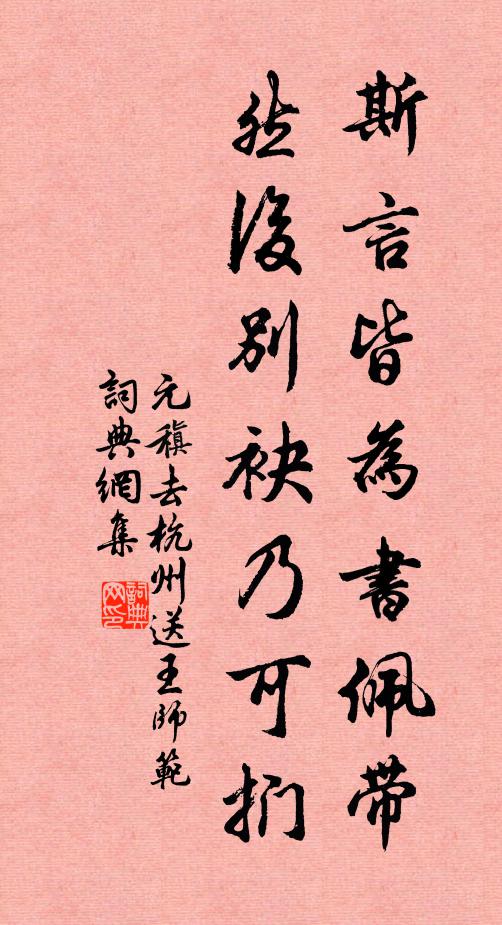 斯言皆為書佩帶
然後別袂乃可捫
元稹去杭州送王師範
詞典網集
詞典网印